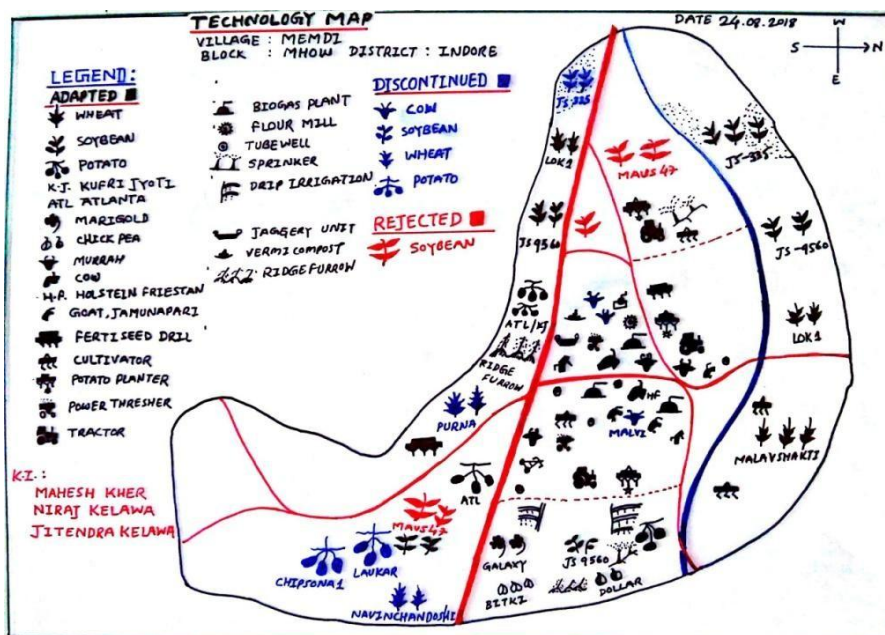 TECHNOLOGY MAP
VILLAGE : MEMDI
BLOCK : MHOW DISTRICT : INDORE
DATE 24.08.2018
W
S
N
E
LEGEND:
ADAPTED
WHEAT
SOYBEAN
POTATO
K.J. KUFRI JYOTI
ATL ATLANTA
MARIGOLD
CHICK PEA
MURRAH
COW
H.F. HOLSTEIN FRIESTAN
GOAT, JAMUNAPARI
FERTISEED DRIL
CULTIVATOR
POTATO PLANTER
POWER THRESHER
TRACTOR
BIOGAS PLANT
FLOUR MILL
TUBEWELL
SPRINKER
DRIP IRRIGATION
JAGGERY UNIT
VERMI COMPOST
RIDGE FURROW
DISCONTINUED
COW
SOYBEAN
WHEAT
POTATO
REJECTED
SOYBEAN
K.I.:
MAHESH KHER
NIRAJ KELAWA
JITENDRA KELAWA
JS-335
LOK1
MAUS 47
JS-335
JS 9560
JS-9560
ATL/KJ
LOK1
RIDGE
FURROW
PURNA
HF
MALVI
MALAVSHAKTI
ATL
MAUS 47
CHIPSONA1
LAUKAR
GALAXY
JS 9560
BITKI
DOLLAR
NAVINCHANDOSHI